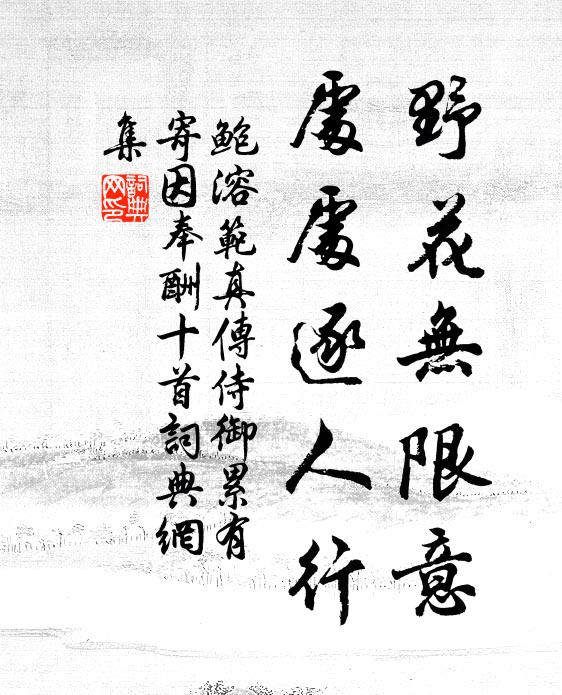 野花無限意
處處逐人行
鲍溶範真傳侍御累有
寄因奉酬十首詞典網
集
詞典
网印